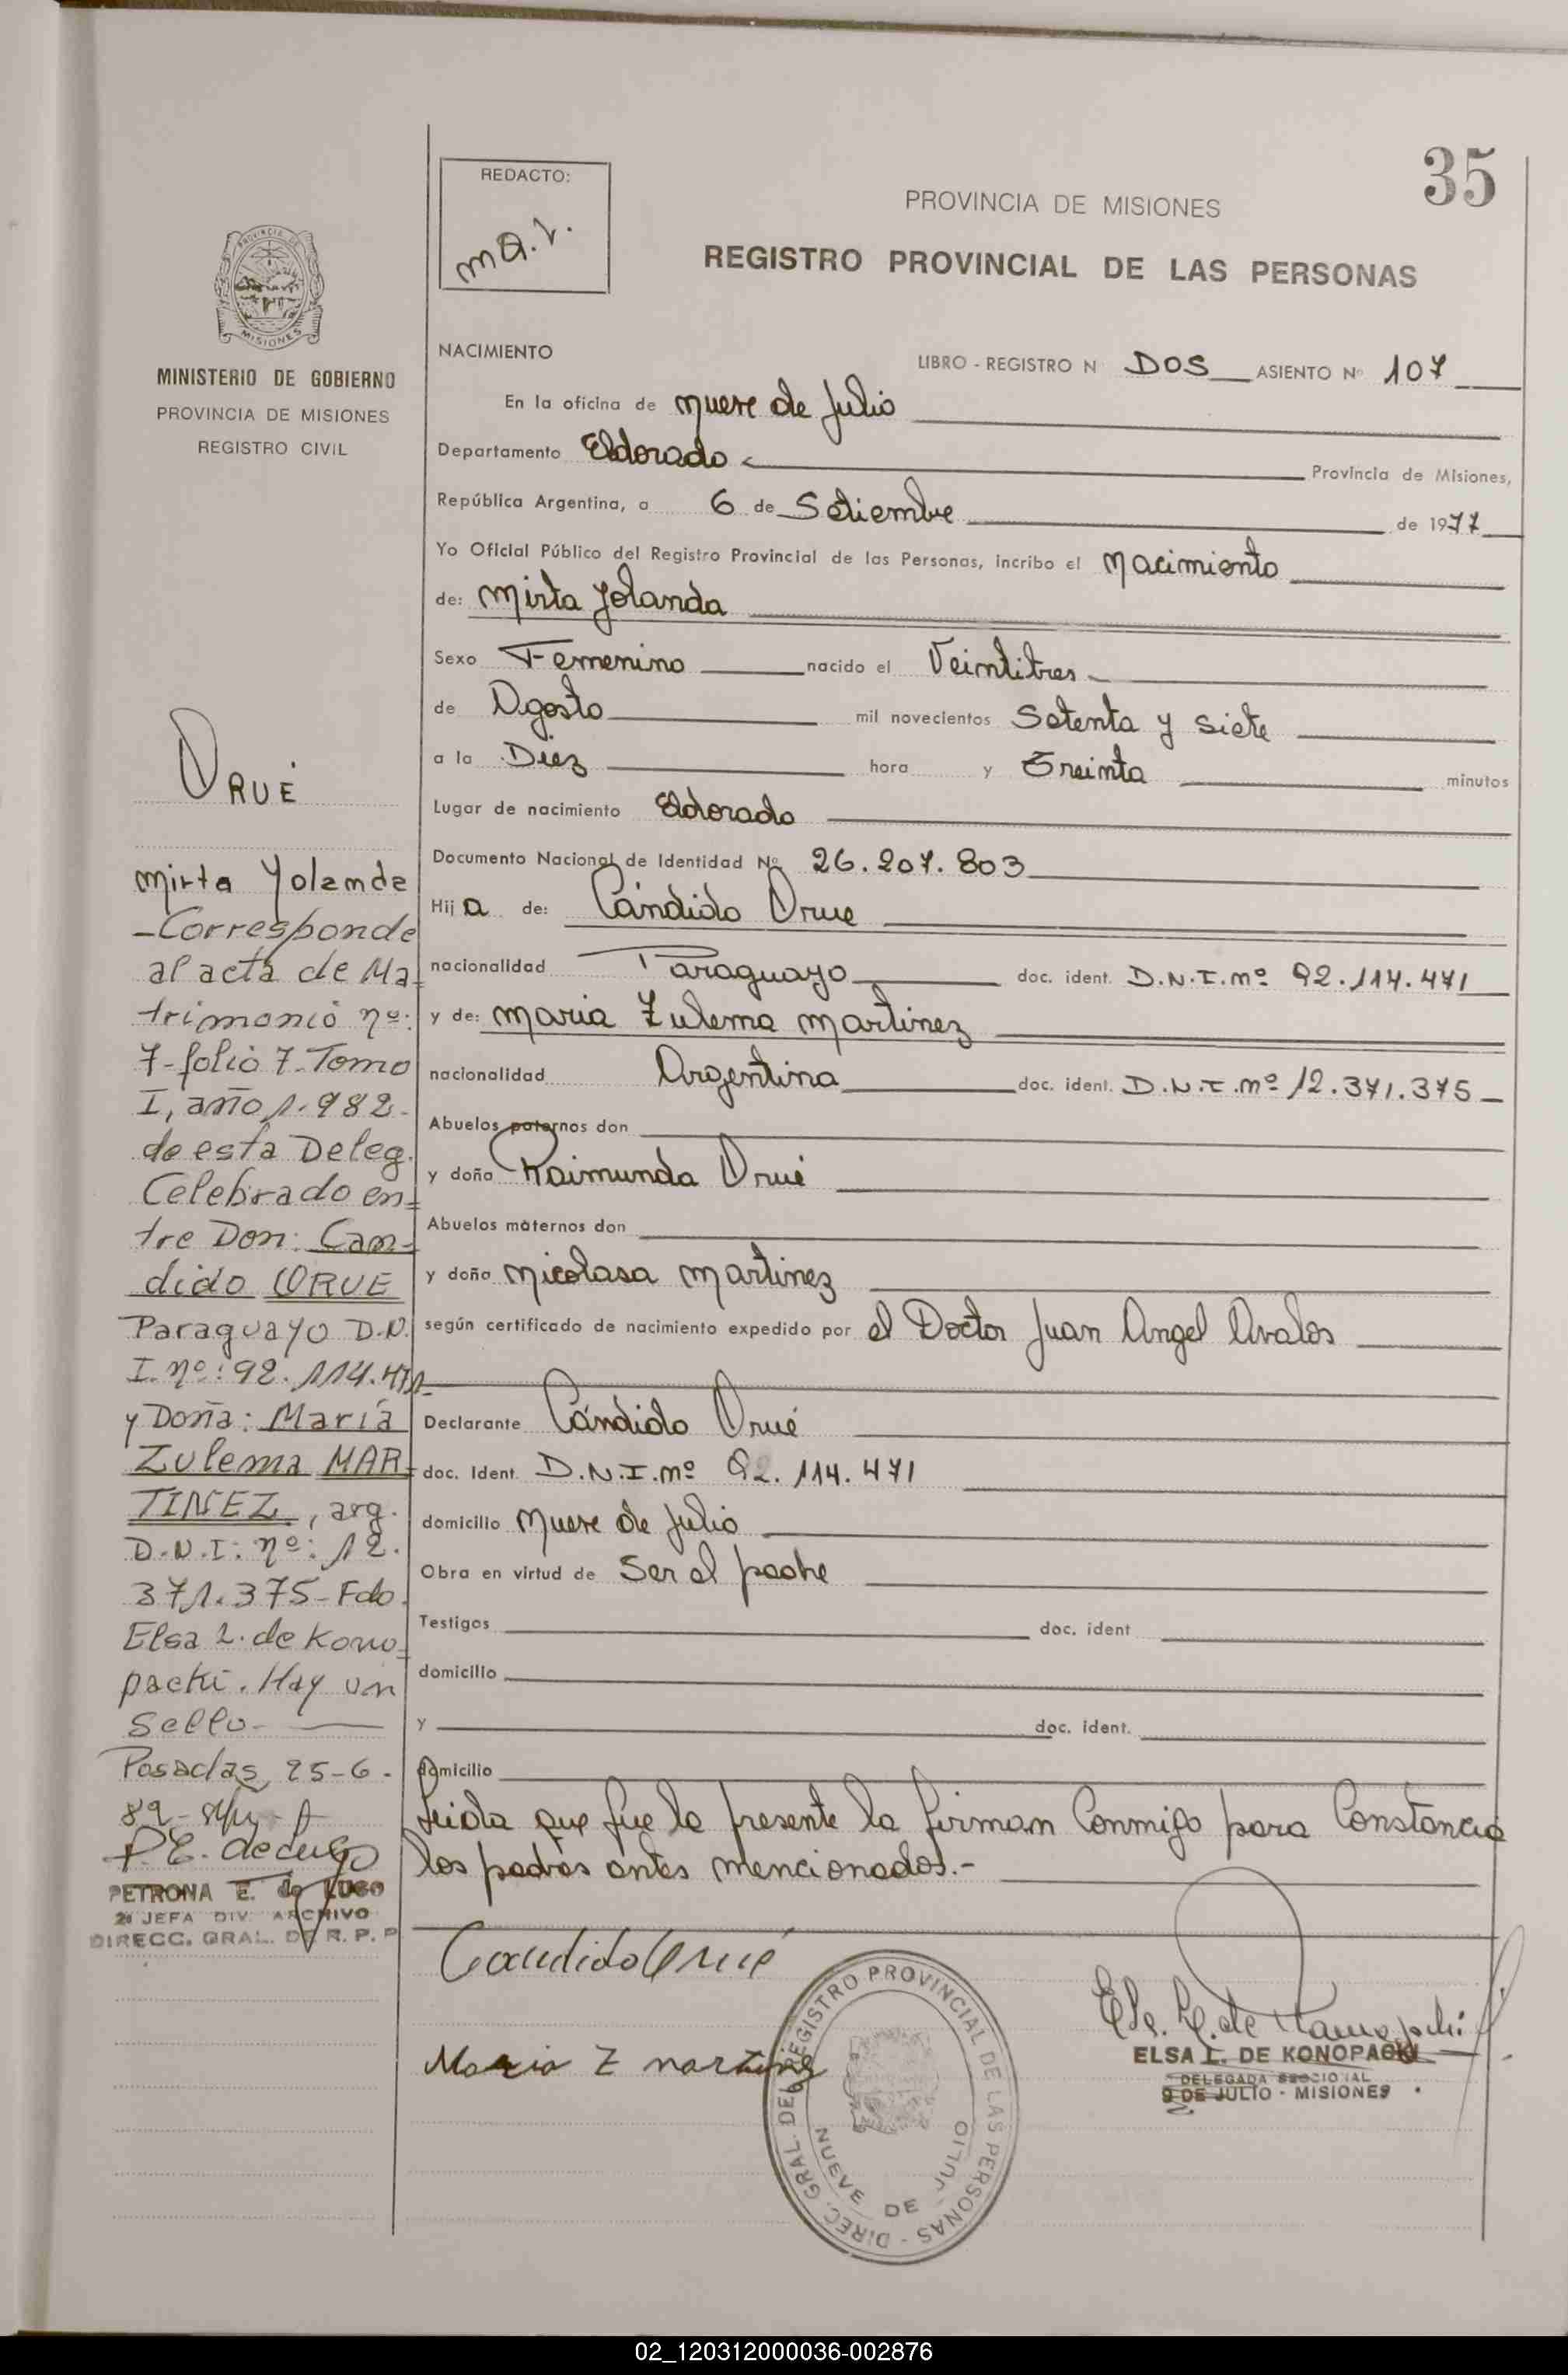 35
REDACTO:
PROVINCIA DE MISIONES
REGISTRO PROVINCIAL DE LAS PERSONAS
MINISTERIO DE GOBIERNO
PROVINCIA DE MISIONES
REGISTRO CIVIL
NACIMIENTO
LIBRO - REGISTRO N DOS ASIENTO Nº 107
En la oficina de Nueve de Julio
Departamento Eldorado Provincia de Misiones,
República Argentina, a 6 de Setiembre de 1977
Yo Oficial Público del Registro Provincial de las Personas, incribo el Nacimiento
de: Mirta Yolanda
Sexo Femenino nacido el Veintitres
de Agosto mil novecientos Setenta y siete
a la Diez hora y Treinta minutos
Lugar de nacimiento Eldorado
Documento Nacional de Identidad Nº 26.207.803
Hija de: Cándido Orue
nacionalidad Paraguayo doc. ident. D.N.I.Nº 92.114.471
y de: Maria Zulema Martinez
nacionalidad Argentina doc. ident. D.N.I.Nº 12.371.375
Abuelos paternos don
y doña Raimunda Orué
Abuelos maternos don
y doña Nicolasa Martinez
según certificado de nacimiento expedido por el Doctor Juan Angel Avalos
Declarante Cándido Orué
doc. Ident. D.N.I.Nº 92.114.471
domicilio Nueve de Julio
Obra en virtud de Ser el padre
Testigos doc. ident
domicilio
y doc. ident.
domicilio
Leida que fue la presente la firman Conmigo para Constancia
los padres antes mencionados.-
Candido Orué
Maria Z Martinez
DIREC. GRAL. DEL REGISTRO PROVINCIAL DE LAS PERSONAS
NUEVE DE JULIO
ELSA L. DE KONOPACKI
9 DE JULIO - MISIONES
ORUÉ
Mirta Yolanda
-Corresponde
al acta de Ma-
trimonio nº:
7-folio 7-Tomo
I, año 1.982-
de esta Deleg.
Celebrado en-
tre Don: Can-
dido ORUE
Paraguayo D.N.
I.Nº: 92.114.471-
y Doña: María
Zulema MAR-
TINEZ, arg.
D.N.I: nº: 12.
371.375-Fdo.
Elsa L. de Kono-
packi. Hay un
Sello-
Posadas, 25-6-
PETRONA E. de LUGO
2ª JEFA DIV. ARCHIVO
DIRECC. GRAL. DE R. P. P.
02_120312000036-002876